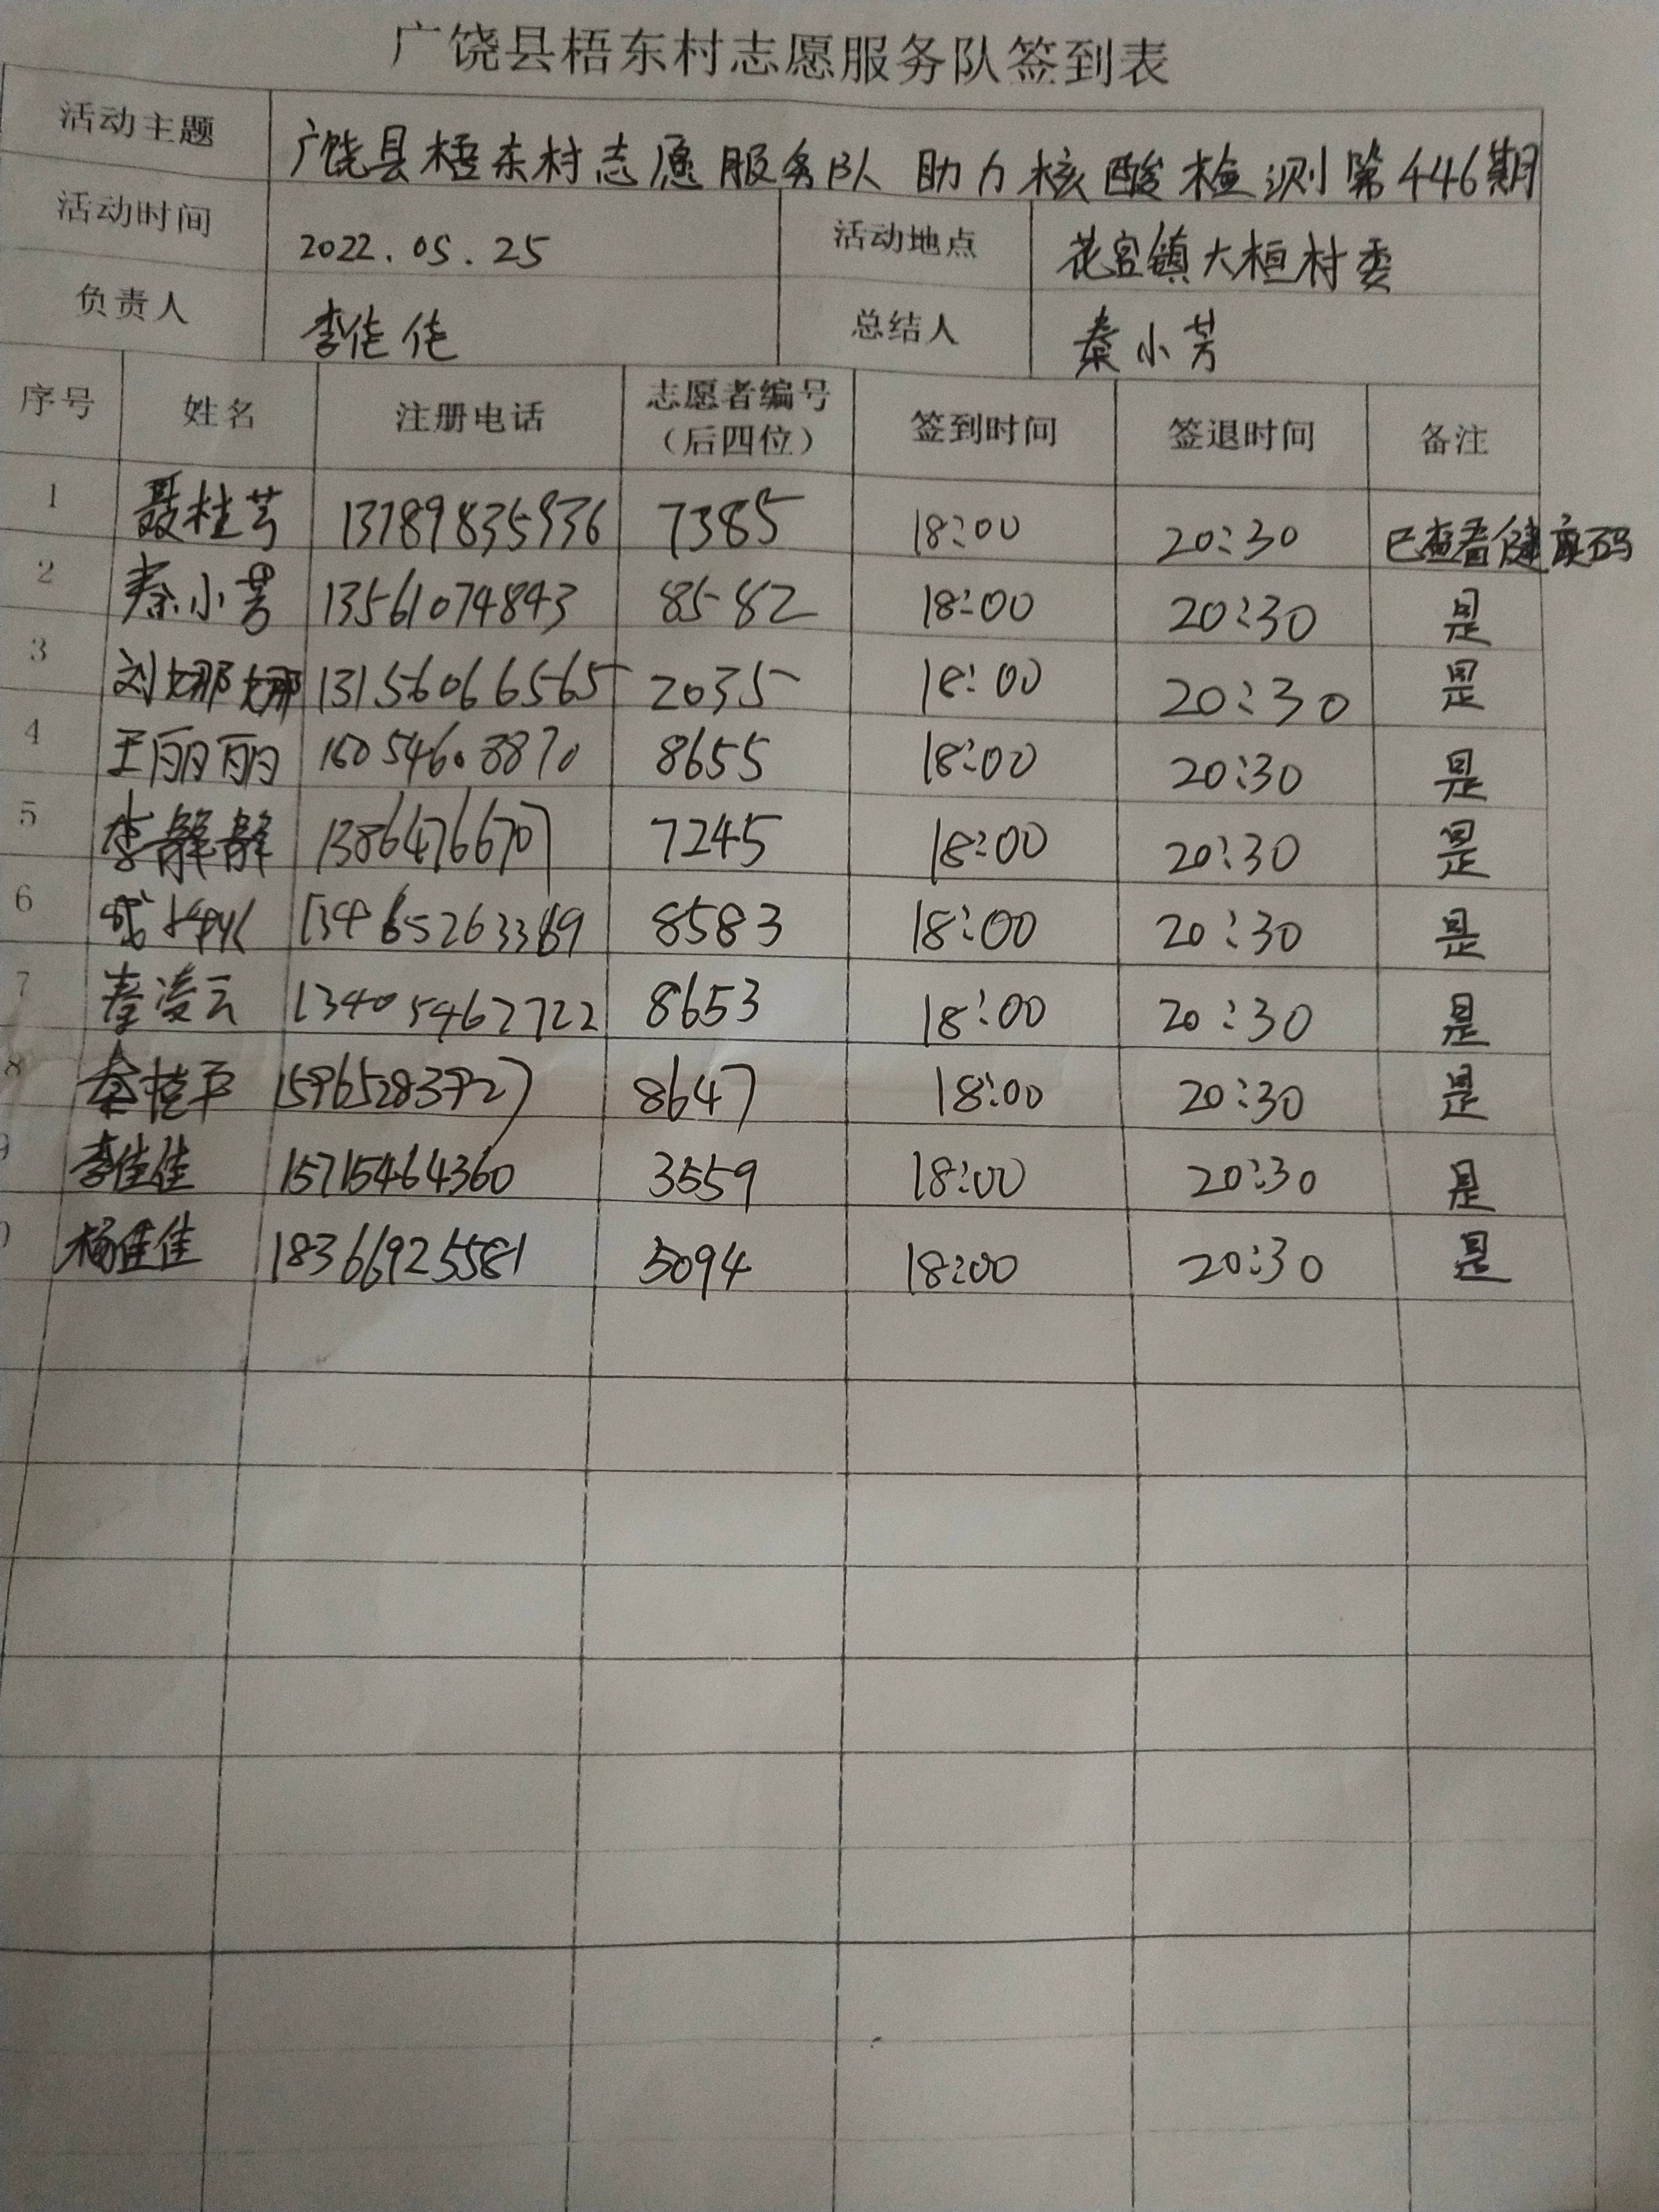 广饶县梧东村志愿服务队签到表
活动主题 广饶县梧东村志愿服务队助力核酸检测第446期
活动时间 2022.05.25 活动地点 花官镇大桓村委
负责人 李佳佳 总结人 秦小芳
序号 姓名 注册电话 志愿者编号（后四位） 签到时间 签退时间 备注
1 聂桂芳 13789835936 7385 18:00 20:30 已查看健康码
2 秦小芳 13561074843 8582 18:00 20:30 是
3 刘娜娜 13156066565 2035 18:00 20:30 是
4 王丽丽 8655 18:00 20:30 是
5 李静静 13864766707 7245 18:00 20:30 是
6 8583 18:00 20:30 是
7 秦凌云 13405462722 8653 18:00 20:30 是
8 秦桂平 15965283927 8647 18:00 20:30 是
李佳佳 15715464360 3559 18:00 20:30 是
杨佳佳 18366925581 5094 18:00 20:30 是